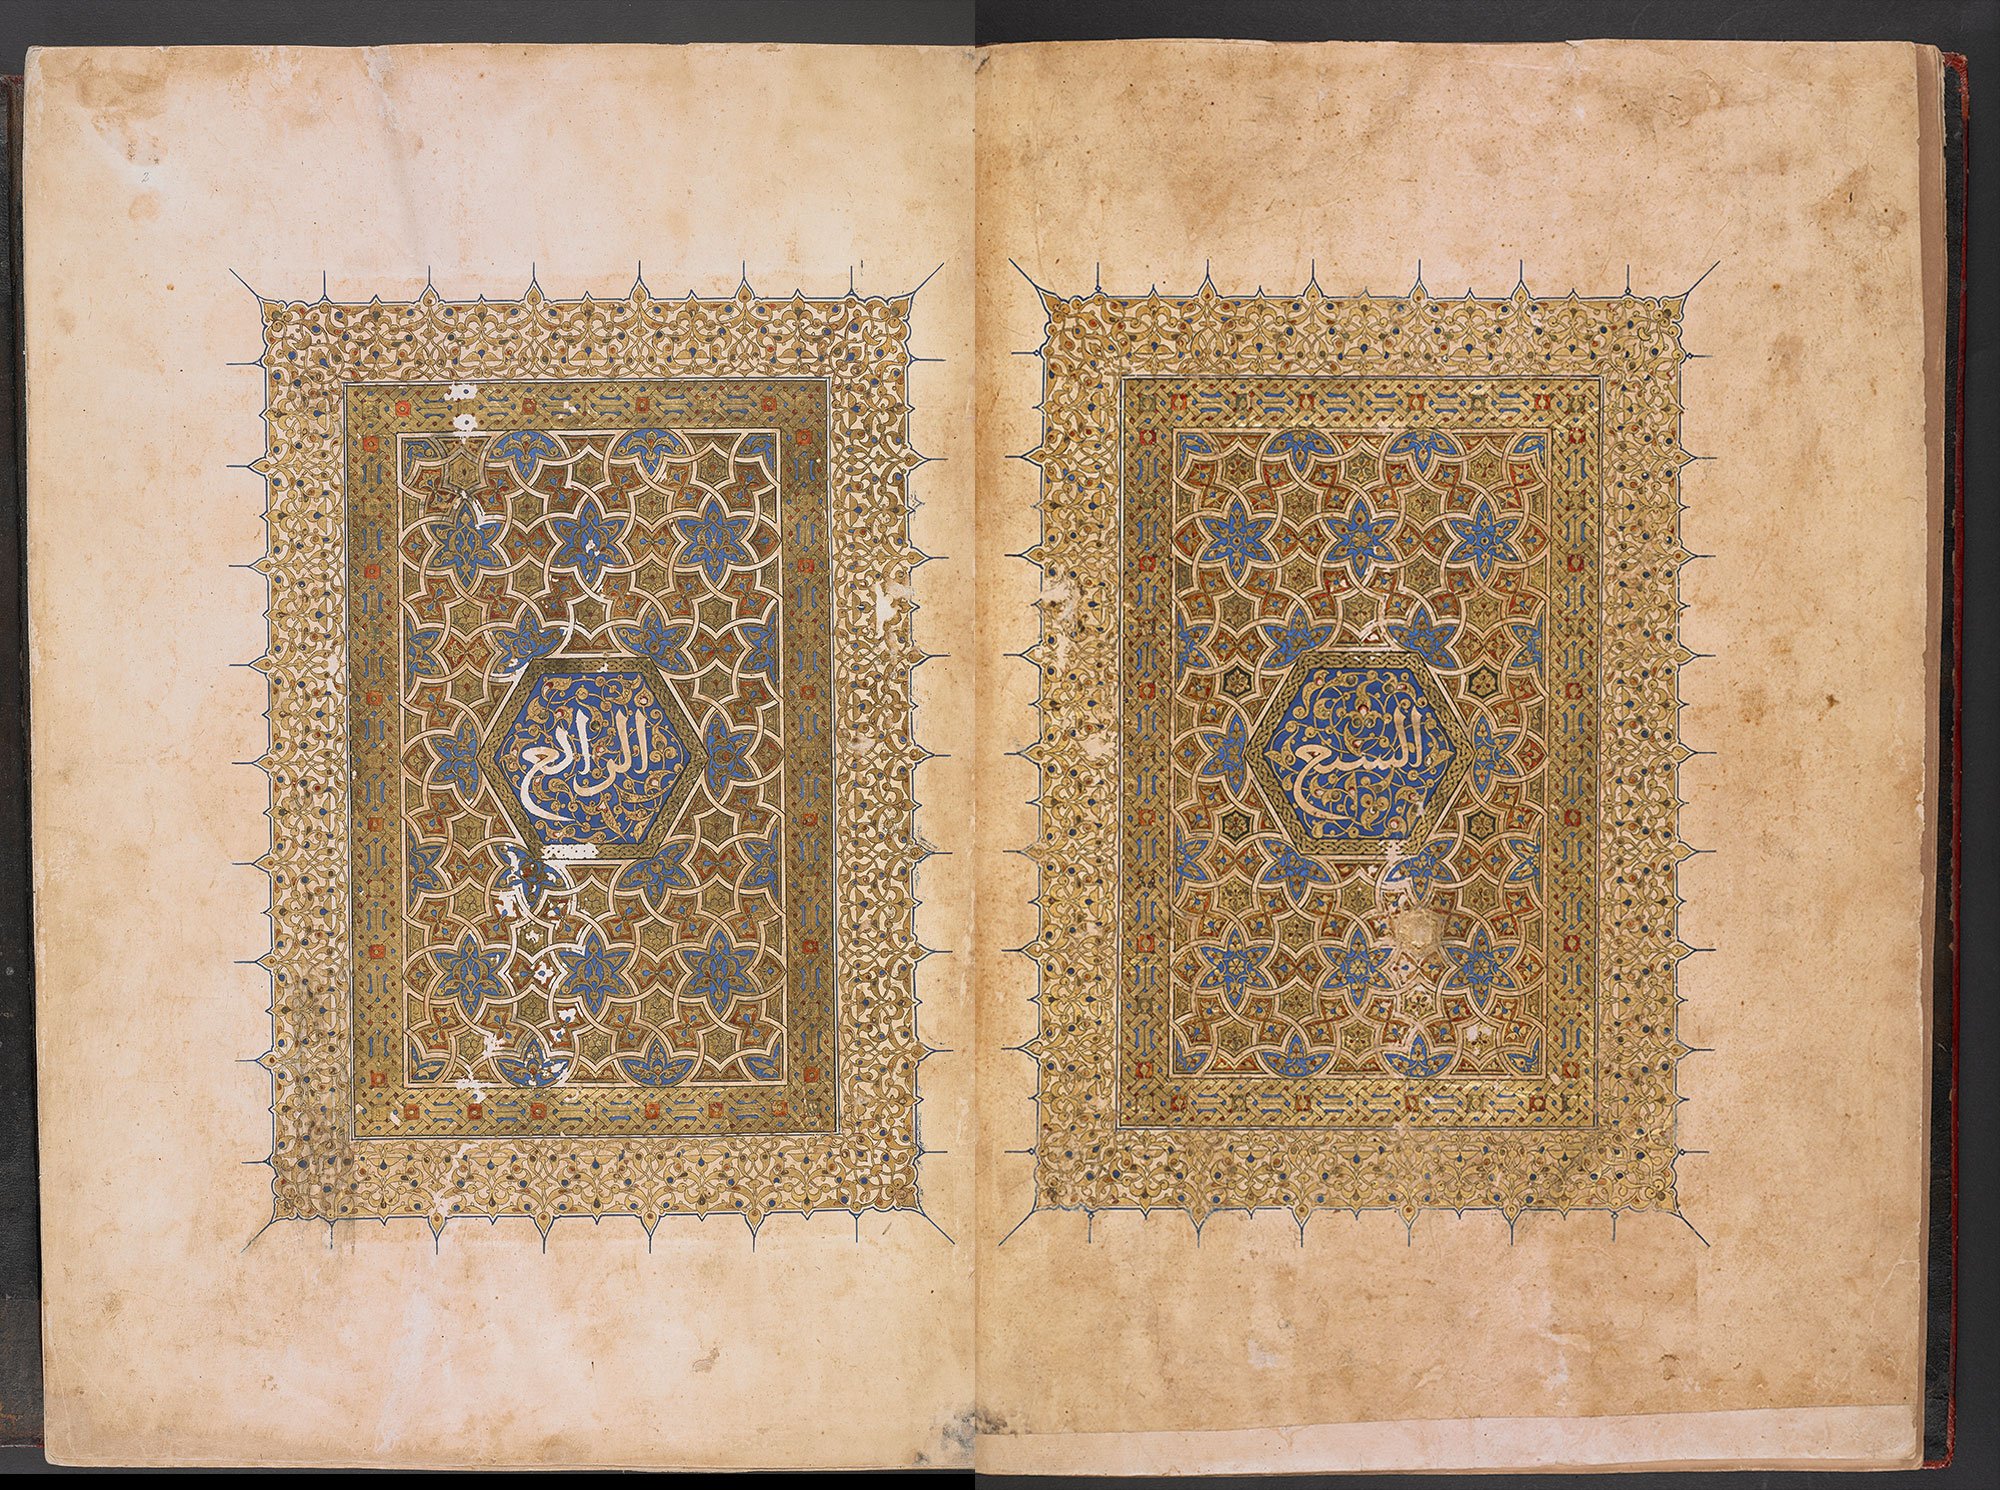 السبع
الرابع
2